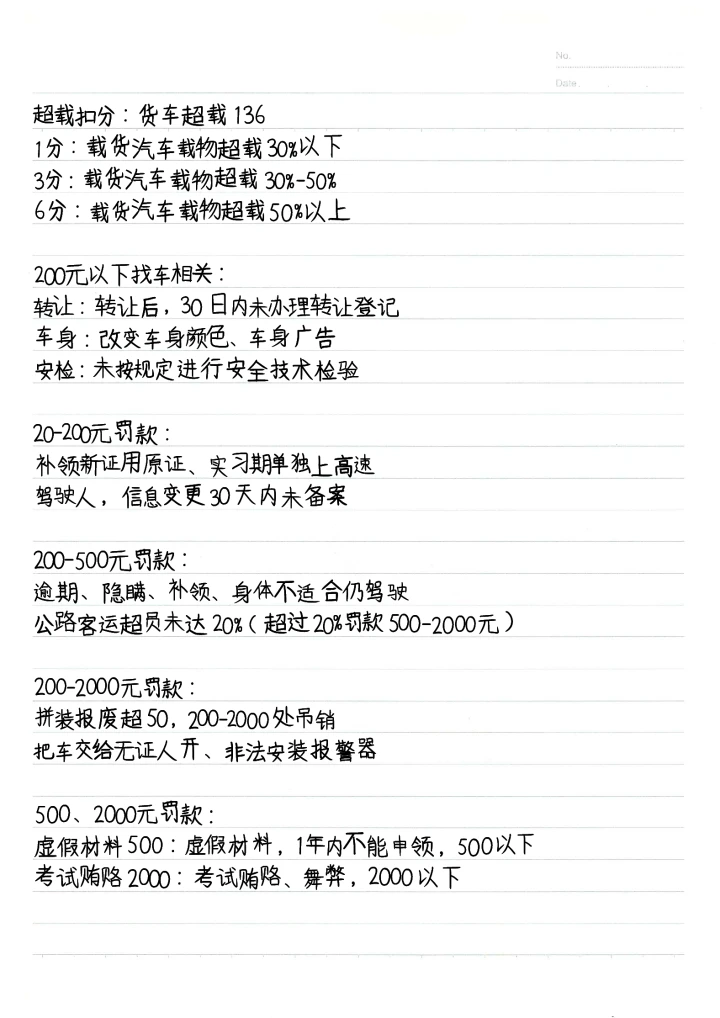 No.
Date.
超载扣分：货车超载136
1分：载货汽车载物超载30%以下
3分：载货汽车载物超载30%-50%
6分：载货汽车载物超载50%以上
200元以下找车相关：
转让：转让后，30日内未办理转让登记
车身：改变车身颜色、车身广告
安检：未按规定进行安全技术检验
20-200元罚款：
补领新证用原证、实习期单独上高速
驾驶人，信息变更30天内未备案
200-500元罚款：
逾期、隐瞒、补领、身体不适合仍驾驶
公路客运超员未达20%（超过20%罚款500-2000元）
200-2000元罚款：
拼装报废超50，200-2000处吊销
把车交给无证人开、非法安装报警器
500、2000元罚款：
虚假材料500：虚假材料，1年内不能申领，500以下
考试贿赂2000：考试贿赂、舞弊，2000以下